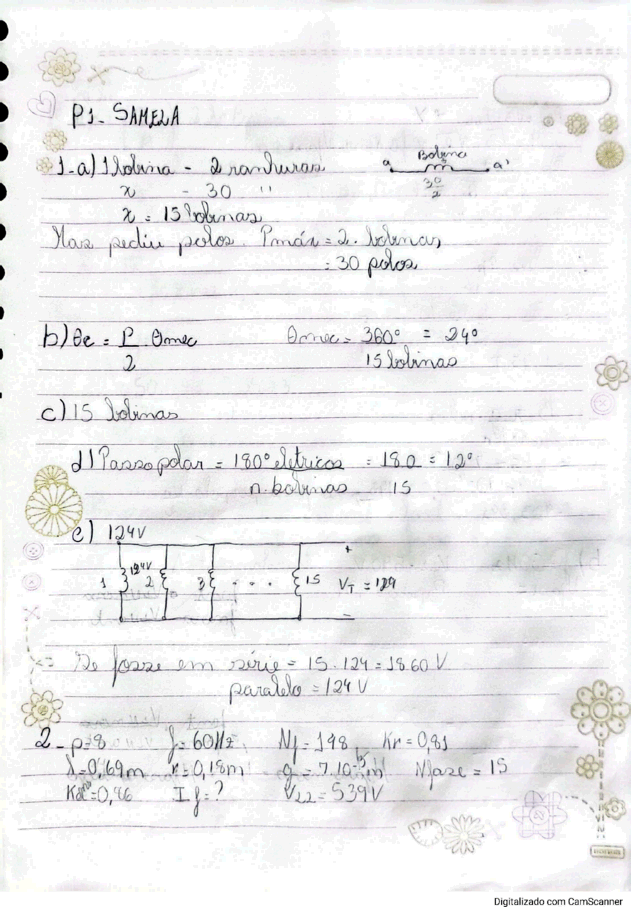 P1- SAMELA
1-a) 1 bobina - 2 ranhuras
x - 30 "
x = 15 bobinas
Bobina
a a'
30
2
Mas pediu polos. Pmáx = 2. bobinas
= 30 polos
b) θe = P θmec θmec = 360° = 24°
2 15 bobinas
c) 15 bobinas
d) Passo polar = 180° elétricos = 180 = 12°
n. bobinas 15
e) 124V
+
1 124V 2 3 . . . 15 VT = 124
-
Se fosse em série = 15.124 = 1860 V
paralelo = 124 V
2- p=8 f=60Hz Nf=198 Kr=0,81
l=0,69m r=0,18m Nfase = 15
If=? V22 = 539V
Digitalizado com CamScanner